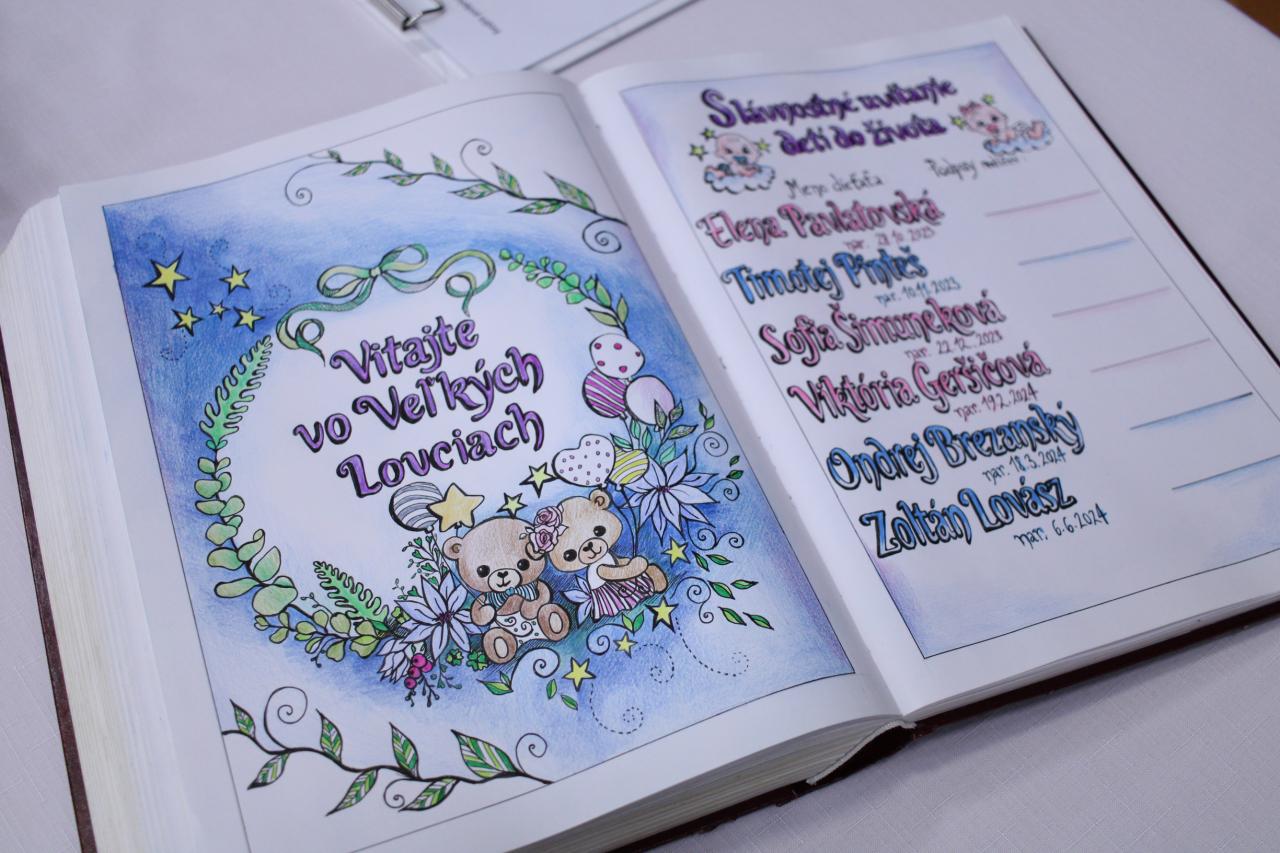 Vitajte
vo Veľkých
Lovciach
Slávnostné uvítanie
detí do života
Meno dieťaťa
Podpisy
Elena Pavlatovská
nar. 28.10. 2023
Timotej Pinteš
nar. 10.11. 2023
Sofia Šimuneková
nar. 22.12. 2023
Viktória Geršičová
nar. 19.2. 2024
Ondrej Brezanský
nar. 18.3. 2024
Zoltán Lovász
nar. 6.6. 2024